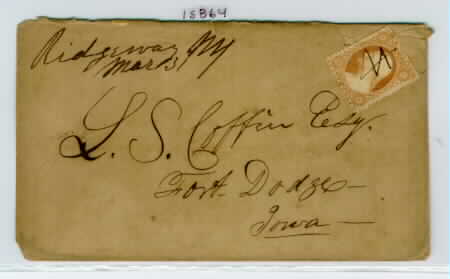 15864
Ridgeway NY
Mar 3
L. S. Coffin Esq.
Fort Dodge
Iowa